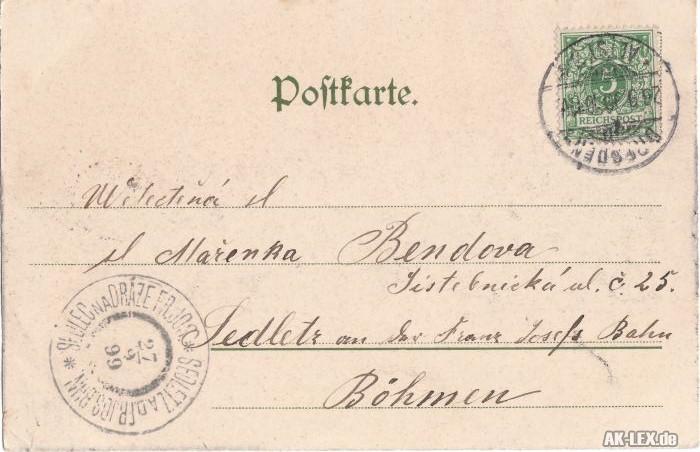 Postkarte.
5
REICHSPOST
DRESDEN
ALTST.
Welectená sl
sl Mařenka Bendova
Jistebnická ul. č. 25.
Sedletz an der Franz Josefs Bahn
Böhmen
SEDLEC NA DRÁZE FR. JOS.
* SEDLETZ A.D. FR. JOS. BAHN *
27
9
99
AK-LEX.de